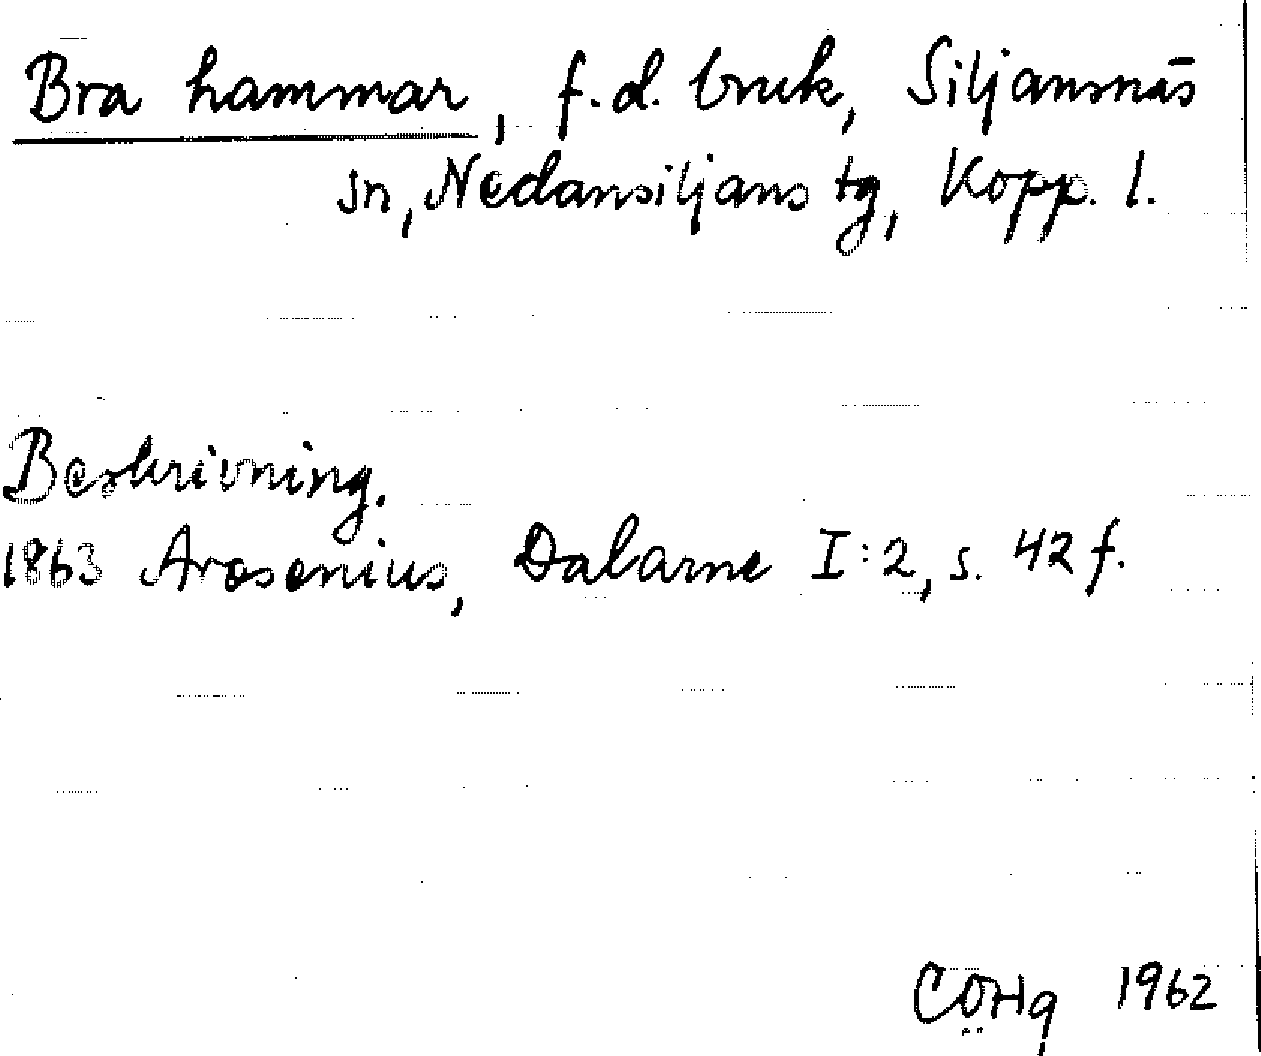 Bra hammar, f.d. bruk, Siljansnäs
sn, Nedansiljans tg, Kopp. l.
Beskrivning.
1863 Arosenius, Dalarne I:2, s. 42 f.
1962